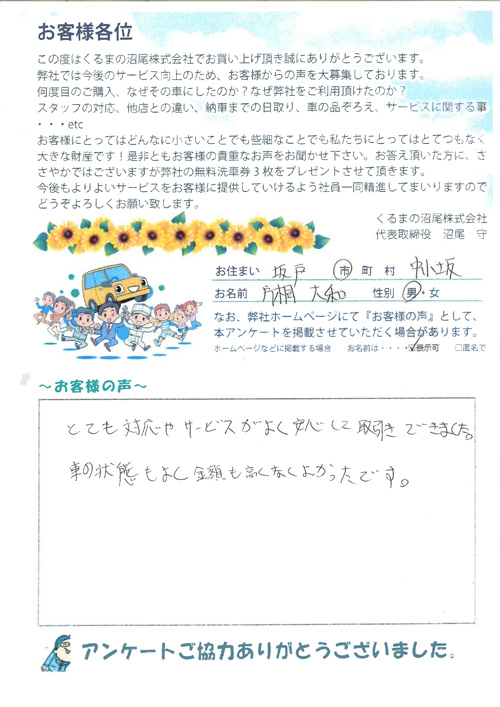 お客様各位
この度はくるまの沼尾株式会社でお買い上げ頂き誠にありがとうございます。
弊社では今後のサービス向上のため、お客様からの声を大募集しております。
何度目のご購入、なぜその車にしたのか？なぜ弊社をご利用頂けたのか？
スタッフの対応、他店との違い、納車までの日取り、車の品ぞろえ、サービスに関する事
・・・etc
お客様にとってはどんなに小さいことでも些細なことでも私たちにとってはとてつもなく
大きな財産です！是非ともお客様の貴重なお声をお聞かせ下さい。お答え頂いた方に、さ
さやかではございますが弊社の無料洗車券３枚をプレゼントさせて頂きます。
今後もよりよいサービスをお客様に提供していけるよう社員一同精進してまいりますので
どうぞよろしくお願い致します。
くるまの沼尾株式会社
代表取締役 沼尾 守
お住まい 坂戸 市 町 村 中小坂
お名前 片桐 大和 性別 男・女
なお、弊社ホームページにて『お客様の声』として、
本アンケートを掲載させていただく場合があります。
ホームページなどに掲載する場合 お名前は・・・・☑表示可 □匿名で
～お客様の声～
とても対応や サービスがよく安心して取引きできました。
車の状態もよく金額も高くなくよかったです。
アンケートご協力ありがとうございました。